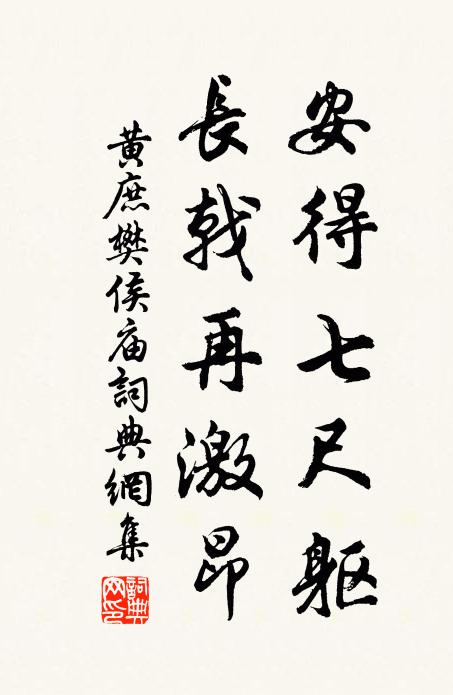 安得七尺軀
長戟再激昂
黃庶樊侯庙詞典網集
詞典网印